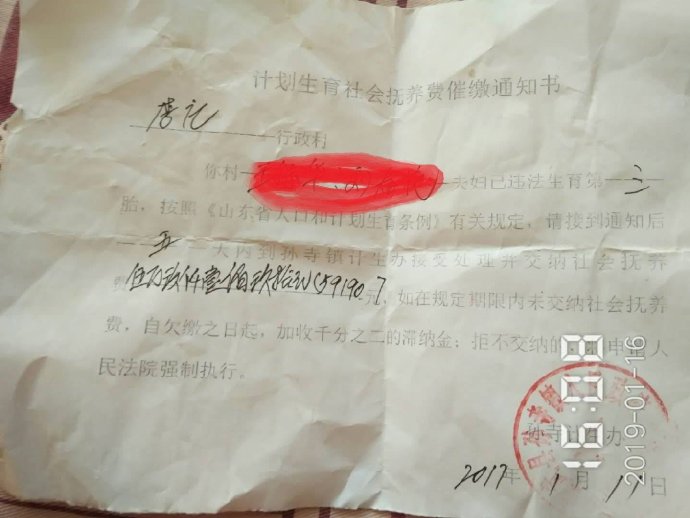 计划生育社会抚养费催缴通知书
行政村
你村 夫妇已违法生育第三
胎，按照《山东省人口和计划生育条例》有关规定，请接到通知后
五天内到孙寺镇计生办接受处理并交纳社会抚养
伍万玖仟壹佰玖拾元(59190元)，如在规定期限内未交纳社会抚养
费，自欠缴之日起，加收千分之二的滞纳金；拒不交纳的，申 人
民法院强制执行。
孙寺计生办
2017年1月19日
16:08
2019-01-16